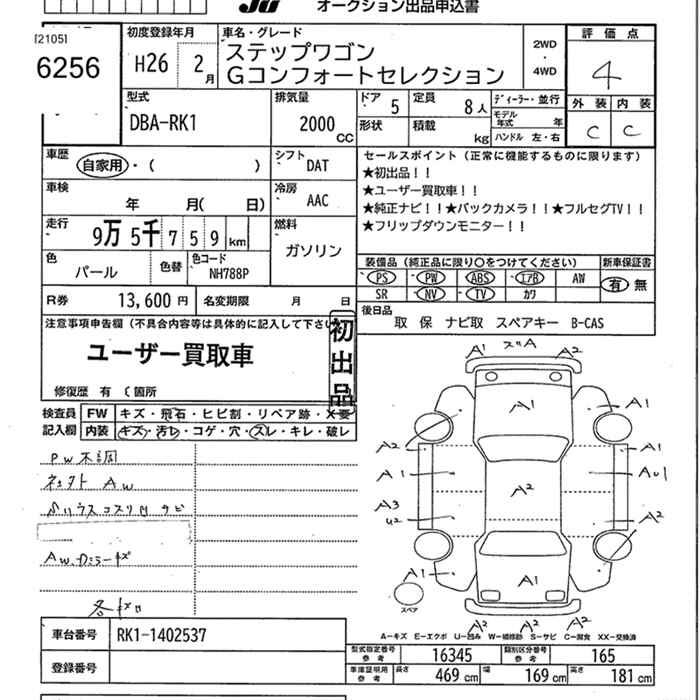 JU オークション出品申込書
[2105]
6256
初度登録年月
H26 2月
車名・グレード
ステップワゴン
Gコンフォートセレクション
2WD
・
4WD
評価点
4
外装 内装
C C
型式
DBA-RK1
排気量
2000 CC
ドア 5
定員 8人
形状
積載 kg
ディーラー・並行
モデル年式 年
ハンドル 左・右
車歴
自家用・( )
シフト
DAT
車検
年 月( 日)
冷房
AAC
走行
9万5千759km
燃料
ガソリン
色
パール
色替
色コード
NH788P
R券 13,600円
名変期限 月 日
セールスポイント(正常に機能するものに限ります)
★初出品!!
★ユーザー買取車!!
★純正ナビ!!★バックカメラ!!★フルセグTV!!
★フリップダウンモニター!!
装備品(純正品に限り○をつけてください) 新車保証書
PS PW ABS エアB AW 有 無
SR NV TV カワ
後日品
取 保 ナビ取 スペアキー B-CAS
注意事項申告欄(不具合内容等は具体的に記入して下さい
ユーザー買取車
初出品
修復歴 有 (箇所
検査員 FW キズ・飛石・ヒビ割・リペア跡・X要
記入欄 内装 キズ・汚レ・コゲ・穴・スレ・キレ・破レ
PW不調
AW
サビ
各キズ
A1 A2
A1
A1
A2 A1
A1 AU1
A2
A3
U2
A2
A1 A1 A1
スペア
A2 A2
A2
A-キズ E-エクボ U-凹み W-補修跡 S-サビ C-腐食 XX-交換済
車台番号 RK1-1402537
登録番号
型式指定番号参考 16345
類別区分番号参考 165
車庫証明用参考 長さ 469cm 幅 169cm 高さ 181cm